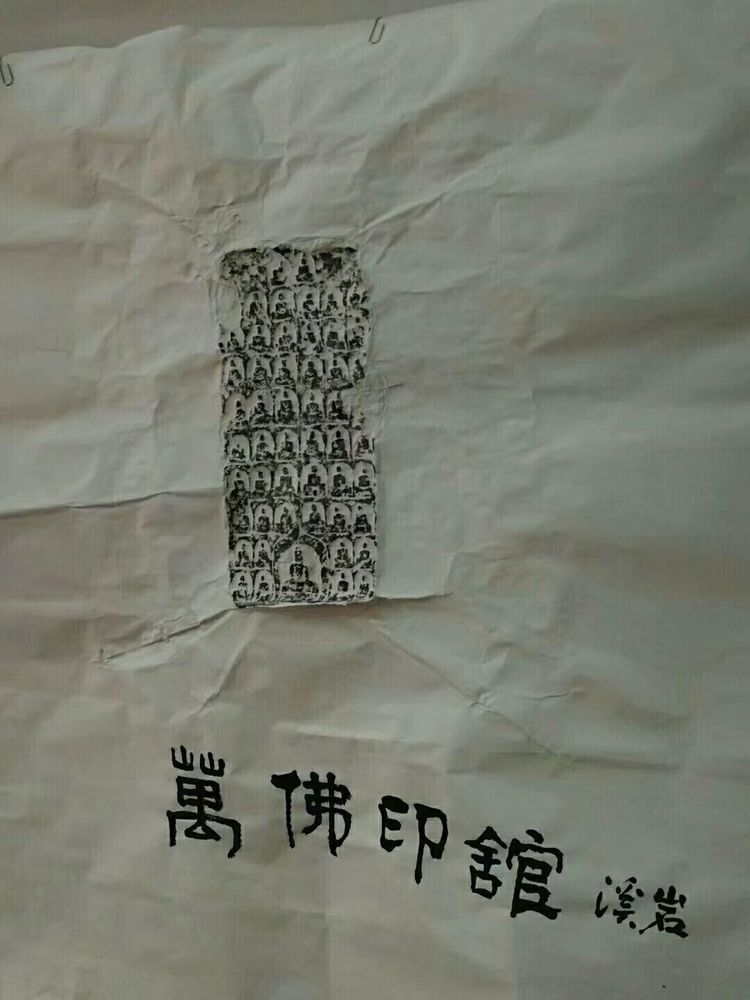 萬佛印舘 溪岩